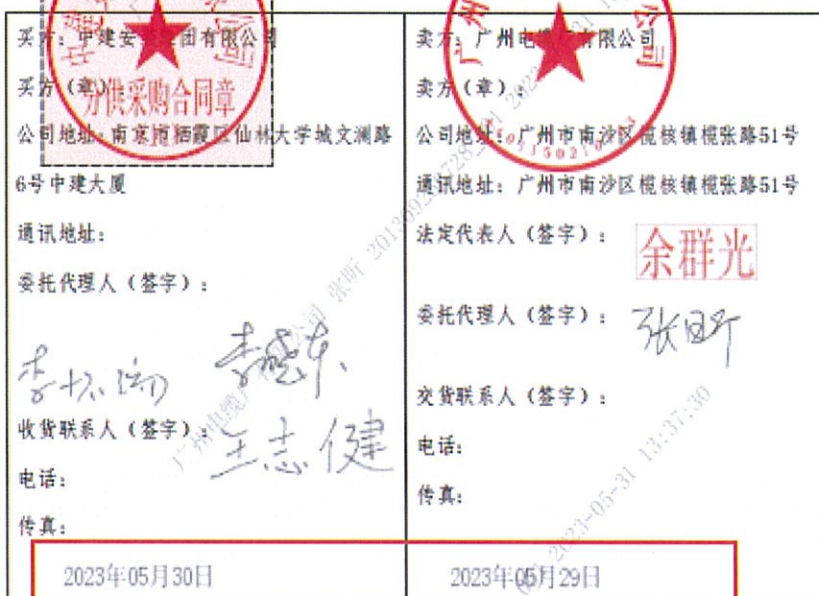 买方：中建安 集团有限公司
买方（章）：
分供采购合同章
公司地址：南京市栖霞区仙林大学城文澜路
6号中建大厦
通讯地址：
委托代理人（签字）：
收货联系人（签字）：
王志健
电话：
传真：
2023年05月30日
卖方：广州电缆厂有限公司
卖方（章）：
公司地址：广州市南沙区榄核镇榄张路51号
通讯地址：广州市南沙区榄核镇榄张路51号
法定代表人（签字）：
余群光
委托代理人（签字）：
张昕
交货联系人（签字）：
电话：
传真：
2023年05月29日
2023-05-31 13:37:30